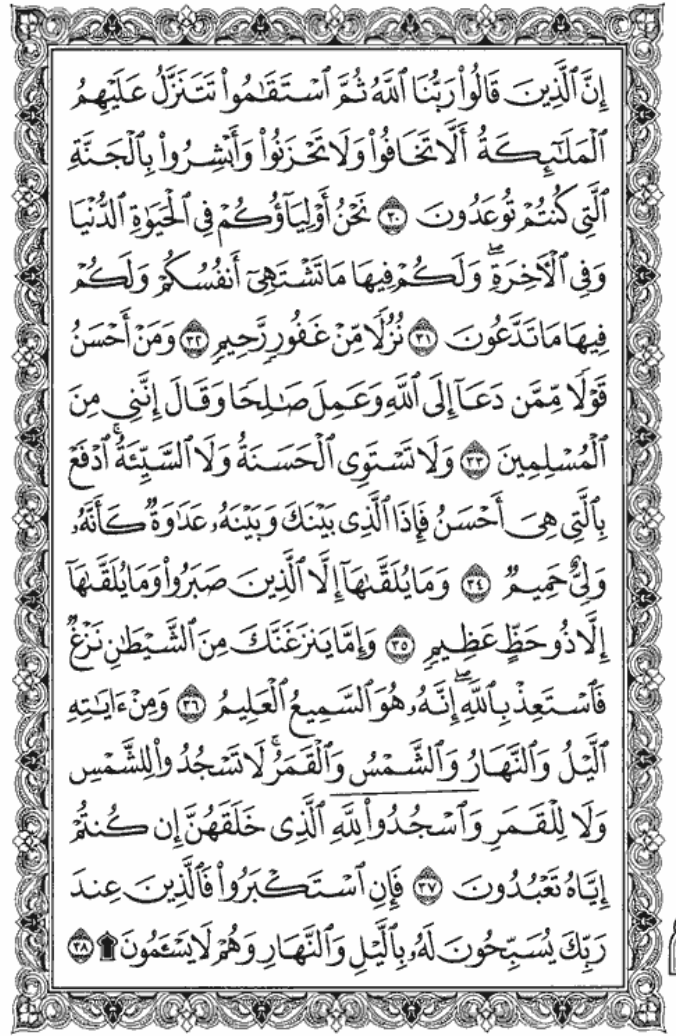 إِنَّ ٱلَّذِينَ قَالُوا۟ رَبُّنَا ٱللَّهُ ثُمَّ ٱسْتَقَٰمُوا۟ تَتَنَزَّلُ عَلَيْهِمُ
ٱلْمَلَٰٓئِكَةُ أَلَّا تَخَافُوا۟ وَلَا تَحْزَنُوا۟ وَأَبْشِرُوا۟ بِٱلْجَنَّةِ
ٱلَّتِى كُنتُمْ تُوعَدُونَ ٣٠ نَحْنُ أَوْلِيَآؤُكُمْ فِى ٱلْحَيَوٰةِ ٱلدُّنْيَا
وَفِى ٱلْءَاخِرَةِ ۖ وَلَكُمْ فِيهَا مَا تَشْتَهِىٓ أَنفُسُكُمْ وَلَكُمْ
فِيهَا مَا تَدَّعُونَ ٣١ نُزُلًا مِّنْ غَفُورٍ رَّحِيمٍ ٣٢ وَمَنْ أَحْسَنُ
قَوْلًا مِّمَّن دَعَآ إِلَى ٱللَّهِ وَعَمِلَ صَٰلِحًا وَقَالَ إِنَّنِى مِنَ
ٱلْمُسْلِمِينَ ٣٣ وَلَا تَسْتَوِى ٱلْحَسَنَةُ وَلَا ٱلسَّيِّئَةُ ۚ ٱدْفَعْ
بِٱلَّتِى هِىَ أَحْسَنُ فَإِذَا ٱلَّذِى بَيْنَكَ وَبَيْنَهُۥ عَدَٰوَةٌ كَأَنَّهُۥ
وَلِىٌّ حَمِيمٌ ٣٤ وَمَا يُلَقَّىٰهَآ إِلَّا ٱلَّذِينَ صَبَرُوا۟ وَمَا يُلَقَّىٰهَآ
إِلَّا ذُو حَظٍّ عَظِيمٍ ٣٥ وَإِمَّا يَنزَغَنَّكَ مِنَ ٱلشَّيْطَٰنِ نَزْغٌ
فَٱسْتَعِذْ بِٱللَّهِ ۖ إِنَّهُۥ هُوَ ٱلسَّمِيعُ ٱلْعَلِيمُ ٣٦ وَمِنْ ءَايَٰتِهِ
ٱلَّيْلُ وَٱلنَّهَارُ وَٱلشَّمْسُ وَٱلْقَمَرُ ۚ لَا تَسْجُدُوا۟ لِلشَّمْسِ
وَلَا لِلْقَمَرِ وَٱسْجُدُوا۟ لِلَّهِ ٱلَّذِى خَلَقَهُنَّ إِن كُنتُمْ
إِيَّاهُ تَعْبُدُونَ ٣٧ فَإِنِ ٱسْتَكْبَرُوا۟ فَٱلَّذِينَ عِندَ
رَبِّكَ يُسَبِّحُونَ لَهُۥ بِٱلَّيْلِ وَٱلنَّهَارِ وَهُمْ لَا يَسْـَٔمُونَ ۩ ٣٨